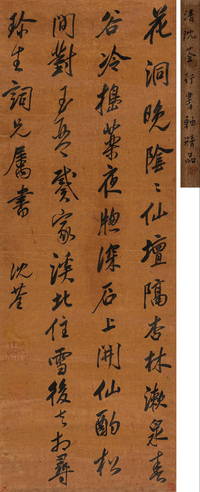 花洞晚陰〻仙壇隔杏林漱泉春
谷冷擣藥夜牕深石上開仙酌松
間對玉琴戴家溪北住雪後去相尋
珎生詞兄屬書
沈荃
清沈荃行書軸精品